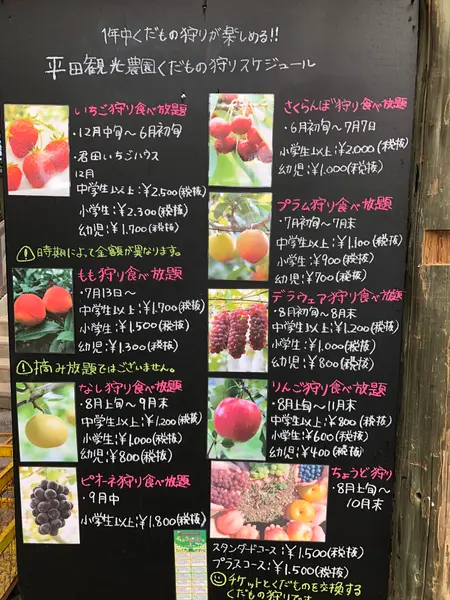 1年中くだもの狩りが楽しめる!!
平田観光農園くだもの狩りスケジュール
いちご狩り食べ放題
・12月中旬〜6月初旬
・君田いちごハウス
12月
中学生以上:¥2.500(税抜)
小学生:¥2.300(税抜)
幼児:¥1.900(税抜)
時期によって金額が異なります。
もも狩り食べ放題
・7月13日〜
中学生以上:¥1.700(税抜)
小学生:¥1.500(税抜)
幼児:¥1.300(税抜)
摘み放題ではございません。
なし狩り食べ放題
・8月上旬〜9月末
中学生以上:¥1.200(税抜)
小学生:¥1.000(税抜)
幼児:¥800(税抜)
ピオーネ狩り食べ放題
・9月中
小学生以上:¥1.800(税抜)
さくらんぼ狩り食べ放題
・6月初旬〜7月7日
小学生以上:¥2.000(税抜)
幼児:¥1.000(税抜)
プラム狩り食べ放題
・7月初旬〜7月末
中学生以上:¥1.100(税抜)
小学生:¥900(税抜)
幼児:¥700(税抜)
デラウェア狩り食べ放題
・8月初旬〜8月末
中学生以上:¥1.200(税抜)
小学生:¥1.000(税抜)
幼児:¥800(税抜)
りんご狩り食べ放題
・8月上旬〜11月末
中学生以上:¥800(税抜)
小学生:¥600(税抜)
幼児:¥400(税抜)
ちょうど狩り
・8月上旬〜
10月末
スタンダードコース:¥1.500(税抜)
プラスコース:¥1.500(税抜)
チケットとくだものを交換する
くだもの狩りです